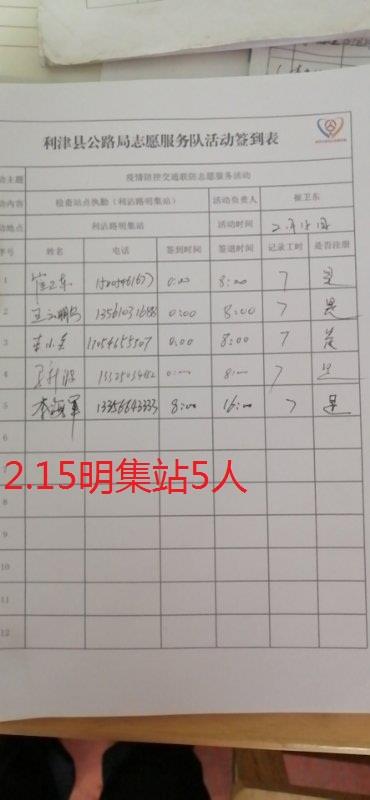 利津县公路局志愿服务队活动签到表
动主题 疫情防控交通联防志愿服务活动
动内容 检查站点执勤（利沾路明集站） 活动负责人 崔卫东
动地点 利沾路明集站 活动时间 2月15日
序号 姓名 电话 签到时间 签退时间 记录工时 是否注册
1 崔卫东 0:00 8:00 7 是
2 0:00 8:00 7 是
3 0:00 8:00 7 是
4 0:00 8:00 7 是
5 李海军 13356643333 8:00 16:00 7 是
6
2.15明集站5人
8
9
10
11
12